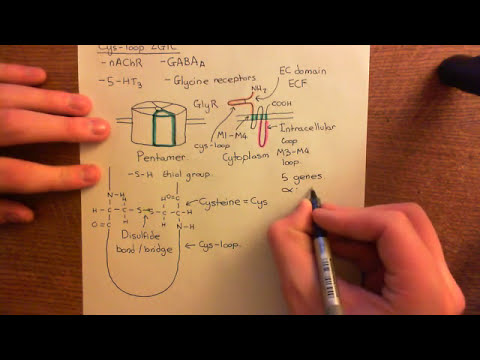 Cys-loop LGIC
- nAChR - GABAA
- 5-HT3 - Glycine receptors
GlyR
NH2
EC domain
ECF
COOH
M1-M4
cys-loop
Intracellular
loop
M3-M4
loop.
Pentamer
Cytoplasm
-S-H thiol group.
5 genes
α1
H
N-H
H-C-C-S-S-C-C-H
O=C
H
H
H
O=C
H
N-H
Cysteine = Cys
Disulfide
bond/bridge
Cys-loop.